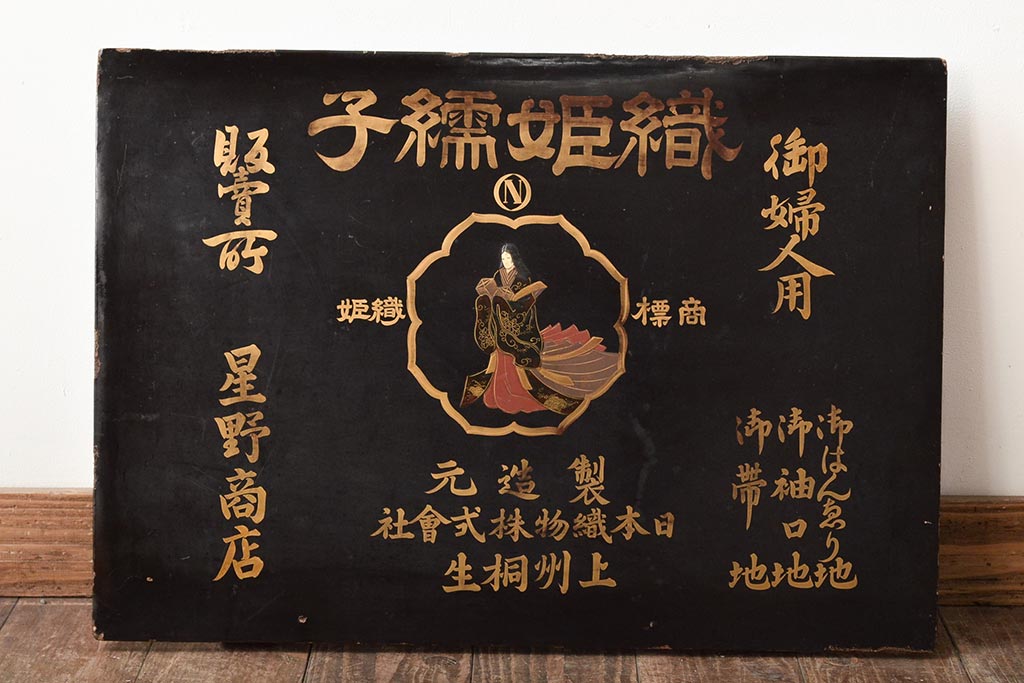 織姫繻子
N
御婦人用
御はんゑり地
御袖口地
御帯地
商標
織姫
製造元
日本織物株式會社
上州桐生
販賣所
星野商店